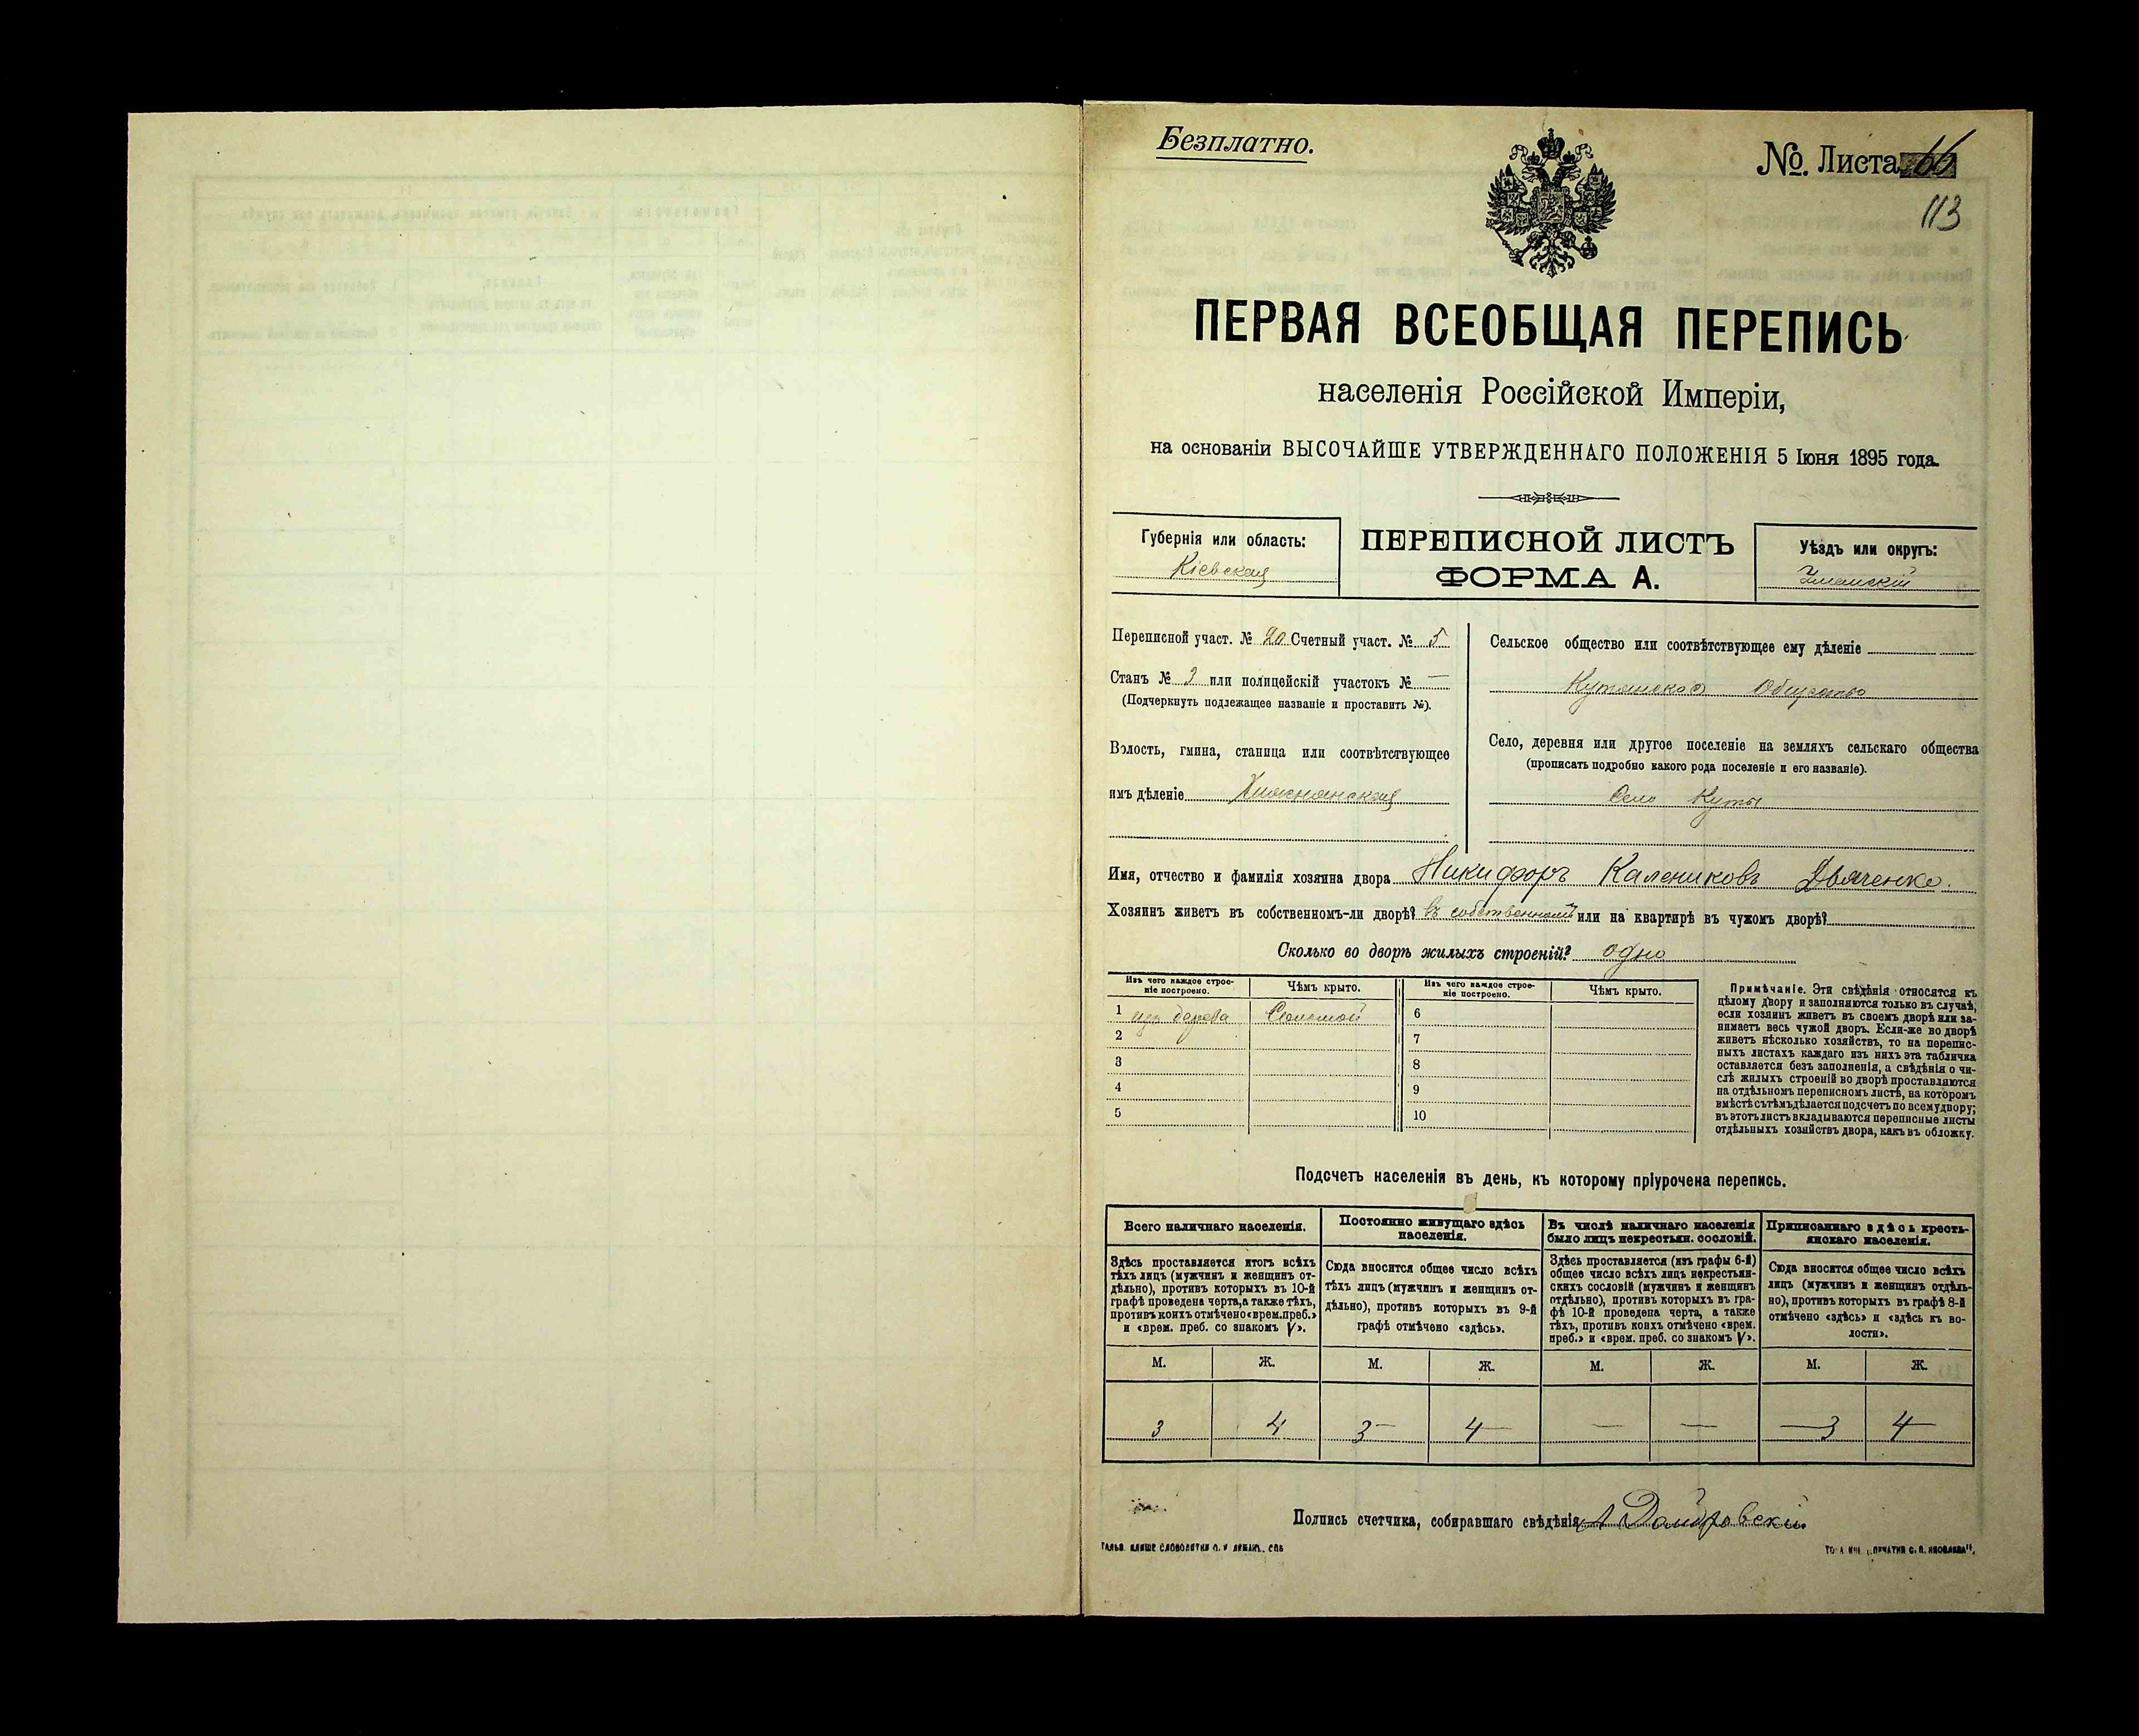 Безплатно.
№. Листа 66
113
ПЕРВАЯ ВСЕОБЩАЯ ПЕРЕПИСЬ
населенія Россійской Имперіи,
на основаніи ВЫСОЧАЙШЕ УТВЕРЖДЕННАГО ПОЛОЖЕНІЯ 5 Іюня 1895 года.
Губернія или область:
Кіевская
ПЕРЕПИСНОЙ ЛИСТЪ
ФОРМА А.
Уѣздъ или округъ:
Уманскій
Переписной участ. № 20 Счетный участ. № 5
Станъ № 3 или полицейскій участокъ № —
(Подчеркнуть подлежащее названіе и проставить №).
Волость, гмина, станица или соотвѣтствующее
имъ дѣленіе
Сельское общество или соотвѣтствующее ему дѣленіе
Общество
Село, деревня или другое поселеніе на земляхъ сельскаго общества
(прописать подробно какого рода поселеніе и его названіе).
Село Куты
Имя, отчество и фамилія хозяина двора Никифоръ Калениковъ Дьяченко.
Хозяинъ живетъ въ собственномъ-ли дворѣ? въ собственномъ или на квартирѣ въ чужомъ дворѣ?
Сколько во дворѣ жилыхъ строеній? одно
Изъ чего каждое строе-
ніе построено.
Чѣмъ крыто.
1 изъ дерева Соломой
2
3
4
5
Изъ чего каждое строе-
ніе построено.
Чѣмъ крыто.
6
7
8
9
10
Примѣчаніе. Эти свѣдѣнія относятся къ
цѣлому двору и заполняются только въ случаѣ,
если хозяинъ живетъ въ своемъ дворѣ или за-
нимаетъ весь чужой дворъ. Если-же во дворѣ
живетъ нѣсколько хозяйствъ, то на перепис-
ныхъ листахъ каждаго изъ нихъ эта табличка
оставляется безъ заполненія, а свѣдѣнія о чи-
слѣ жилыхъ строеній во дворѣ проставляются
на отдѣльномъ переписномъ листѣ, на которомъ
вмѣстѣ съ тѣмъ дѣлается подсчетъ по всему двору;
въ этотъ листъ вкладываются переписные листы
отдѣльныхъ хозяйствъ двора, какъ въ обложку.
Подсчетъ населенія въ день, къ которому пріурочена перепись.
Всего наличнаго населенія.
Здѣсь проставляется итогъ всѣхъ
тѣхъ лицъ (мужчинъ и женщинъ от-
дѣльно), противъ которыхъ въ 10-й
графѣ проведена черта, а также тѣхъ,
противъ коихъ отмѣчено «врем. преб.»
и «врем. преб. со знакомъ V».
М. Ж.
3 4
Постоянно живущаго здѣсь
населенія.
Сюда вносится общее число всѣхъ
тѣхъ лицъ (мужчинъ и женщинъ от-
дѣльно), противъ которыхъ въ 9-й
графѣ отмѣчено «здѣсь».
М. Ж.
3 — 4 —
Въ числѣ наличнаго населенія
было лицъ некрестьян. сословій.
Здѣсь проставляется (изъ графы 6-й)
общее число всѣхъ лицъ некрестьян-
скихъ сословій (мужчинъ и женщинъ
отдѣльно), противъ которыхъ въ гра-
фѣ 10-й проведена черта, а также
тѣхъ, противъ коихъ отмѣчено «врем.
преб.» и «врем. преб. со знакомъ V».
М. Ж.
— —
Приписаннаго здѣсь кресть-
янскаго населенія.
Сюда вносится общее число всѣхъ
лицъ (мужчинъ и женщинъ отдѣль-
но), противъ которыхъ въ графѣ 8-й
отмѣчено «здѣсь» и «здѣсь къ во-
лости».
М. Ж.
— 3 4 —
Подпись счетчика, собиравшаго свѣдѣнія